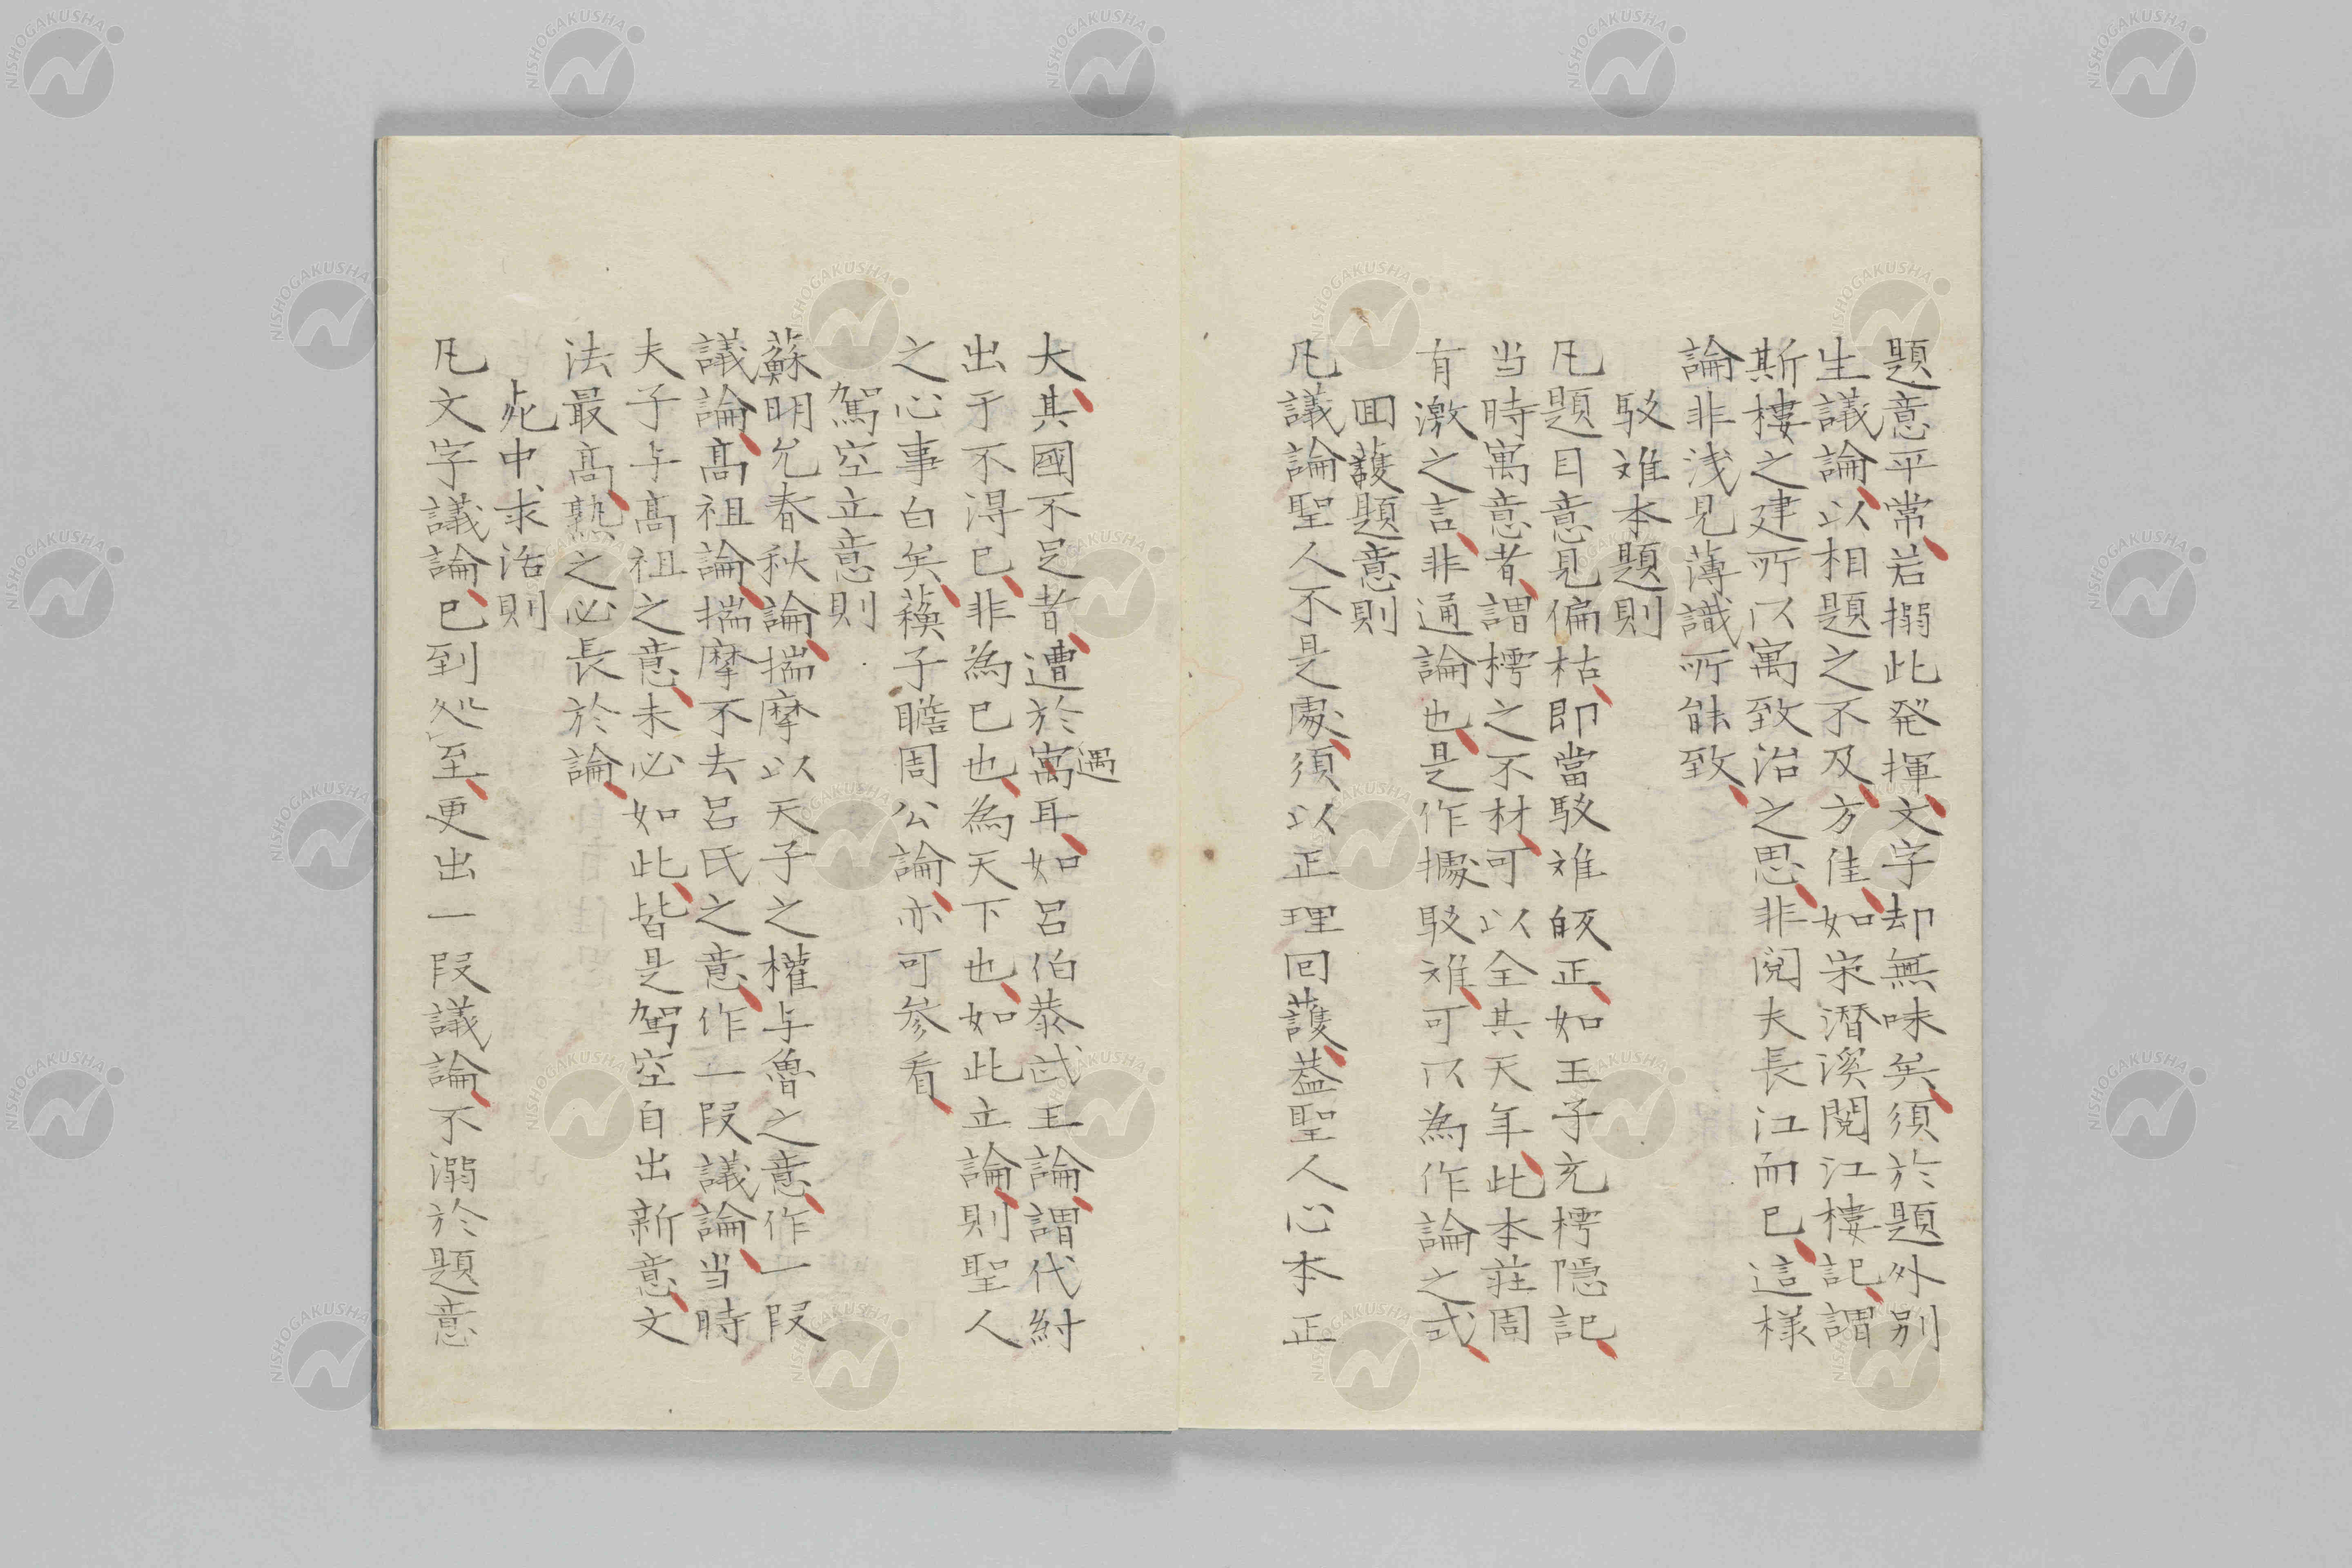 題意平常若搦此発揮文字却無味矣須於題外别
生議論以相題之不及方佳如宋潛溪閱江樓記謂
斯樓之建所以寓致治之思非閱夫長江而已這様
論非浅見薄識所能致
駁难本題則
凡題目意見偏枯即當駁难皈正如王子充樗隠記
当時寓意者謂樗之不材可以全其天年此本莊周
有激之言非通論也是作據駁难可以為作論之式
回護題意則
凡議論聖人不是處須以正理回護葢聖人心本正
大其國不足者遭於寓耳如呂伯恭武王論謂代紂
遇
出于不得已非為已也為天下也如此立論則聖人
之心事白矣蘓子瞻周公論亦可参看
駕空立意則
蘇明允春秋論揣摩以天子之權与魯之意作一段
議論髙祖論揣摩不去呂氏之意作一段議論当時
夫子与髙祖之意未必如此皆是駕空自出新意文
法最髙熟之必長於論
死中求活則
凡文字議論已到处至更出一段議論不溺於題意
NISHOGAKUSHA